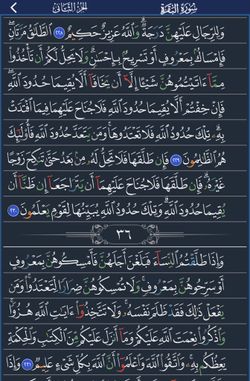 سُورَةُ البَقَرَة
الجُزْءُ الثَّانِي
وَلِلرِّجَالِ عَلَيْهِنَّ دَرَجَةٌۗ وَٱللَّهُ عَزِيزٌ حَكِيمٌ ٢٢٨ ٱلطَّلَٰقُ مَرَّتَانِۖ
فَإِمْسَاكُۢ بِمَعْرُوفٍ أَوْ تَسْرِيحُۢ بِإِحْسَٰنٍۗ وَلَا يَحِلُّ لَكُمْ أَن تَأْخُذُوا۟
مِمَّآ ءَاتَيْتُمُوهُنَّ شَيْـًٔا إِلَّآ أَن يَخَافَآ أَلَّا يُقِيمَا حُدُودَ ٱللَّهِۖ
فَإِنْ خِفْتُمْ أَلَّا يُقِيمَا حُدُودَ ٱللَّهِ فَلَا جُنَاحَ عَلَيْهِمَا فِيمَا ٱفْتَدَتْ
بِهِۦۗ تِلْكَ حُدُودُ ٱللَّهِ فَلَا تَعْتَدُوهَاۚ وَمَن يَتَعَدَّ حُدُودَ ٱللَّهِ فَأُو۟لَٰٓئِكَ
هُمُ ٱلظَّٰلِمُونَ ٢٢٩ فَإِن طَلَّقَهَا فَلَا تَحِلُّ لَهُۥ مِنۢ بَعْدُ حَتَّىٰ تَنكِحَ زَوْجًا
غَيْرَهُۥۗ فَإِن طَلَّقَهَا فَلَا جُنَاحَ عَلَيْهِمَآ أَن يَتَرَاجَعَآ إِن ظَنَّآ أَن
يُقِيمَا حُدُودَ ٱللَّهِۗ وَتِلْكَ حُدُودُ ٱللَّهِ يُبَيِّنُهَا لِقَوْمٍ يَعْلَمُونَ ٢٣٠
٣٦
وَإِذَا طَلَّقْتُمُ ٱلنِّسَآءَ فَبَلَغْنَ أَجَلَهُنَّ فَأَمْسِكُوهُنَّ بِمَعْرُوفٍ
أَوْ سَرِّحُوهُنَّ بِمَعْرُوفٍۚ وَلَا تُمْسِكُوهُنَّ ضِرَارًا لِّتَعْتَدُوا۟ۚ وَمَن
يَفْعَلْ ذَٰلِكَ فَقَدْ ظَلَمَ نَفْسَهُۥۚ وَلَا تَتَّخِذُوٓا۟ ءَايَٰتِ ٱللَّهِ هُزُوًاۚ
وَٱذْكُرُوا۟ نِعْمَتَ ٱللَّهِ عَلَيْكُمْ وَمَآ أَنزَلَ عَلَيْكُم مِّنَ ٱلْكِتَٰبِ وَٱلْحِكْمَةِ
يَعِظُكُم بِهِۦۚ وَٱتَّقُوا۟ ٱللَّهَ وَٱعْلَمُوٓا۟ أَنَّ ٱللَّهَ بِكُلِّ شَىْءٍ عَلِيمٌ ٢٣١ وَإِذَا